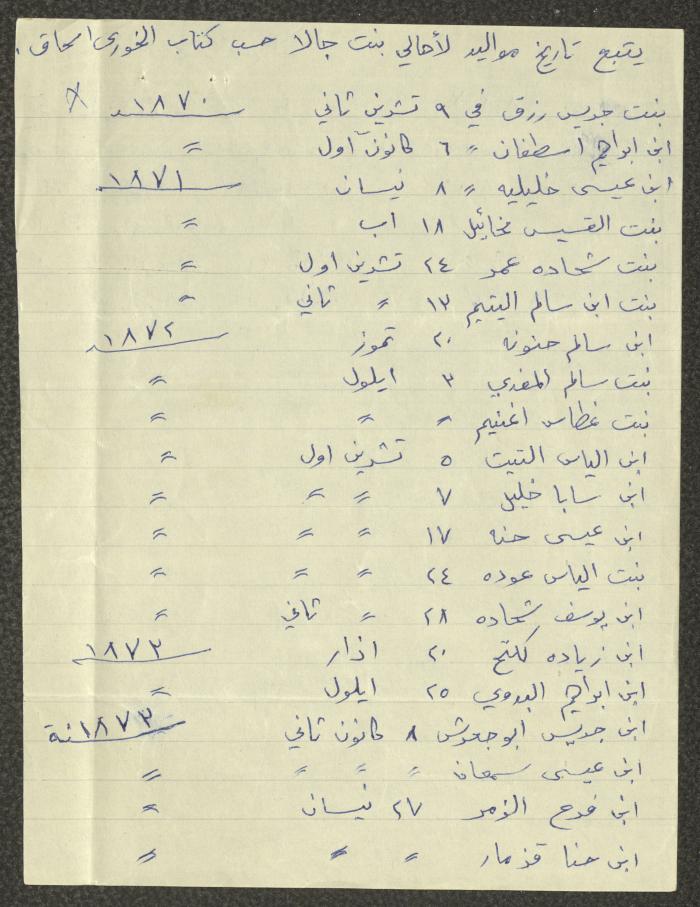 يتبع تاريخ مواليد لأهالي بنت جالا حسب كتاب الخوري اسحاق.
بنت جريس رزق في ٩ تشرين ثاني ١٨٧٠ X
ابن ابراهيم اسطفان 〃 ٦ كانون اول 〃
ابن عيسى خليليه 〃 ٨ نيسان ١٨٧١
بنت القسيس مخائيل ١٨ اب 〃
بنت شحاده عمر ٢٤ تشرين اول 〃
بنت ابن سالم اليتيم ١٣ 〃 ثاني 〃
ابن سالم حنونه ٢٠ تموز ١٨٧٢
بنت سالم المغربي ٣ ايلول 〃
بنت غطاس اغنيم 〃 〃 〃
ابن الياس التيت ٥ تشرين اول 〃
ابن سابا خليل ٧ 〃 〃 〃
ابن عيسى حنه ١٧ 〃 〃 〃
بنت الياس عوده ٢٤ 〃 〃 〃
ابن يوسف شحاده ٢٨ 〃 ثاني 〃
ابن زياده ٢٠ اذار ١٨٧٣
ابن ابراهيم البدوي ٢٥ ايلول 〃
ابن جريس ابو جعرش ٨ كانون ثاني سنة ١٨٧٣
ابن عيسى سمعان 〃 〃 〃 〃
ابن فرح الزمر ٢٧ نيسان 〃
ابن حنا قزمار 〃 〃 〃